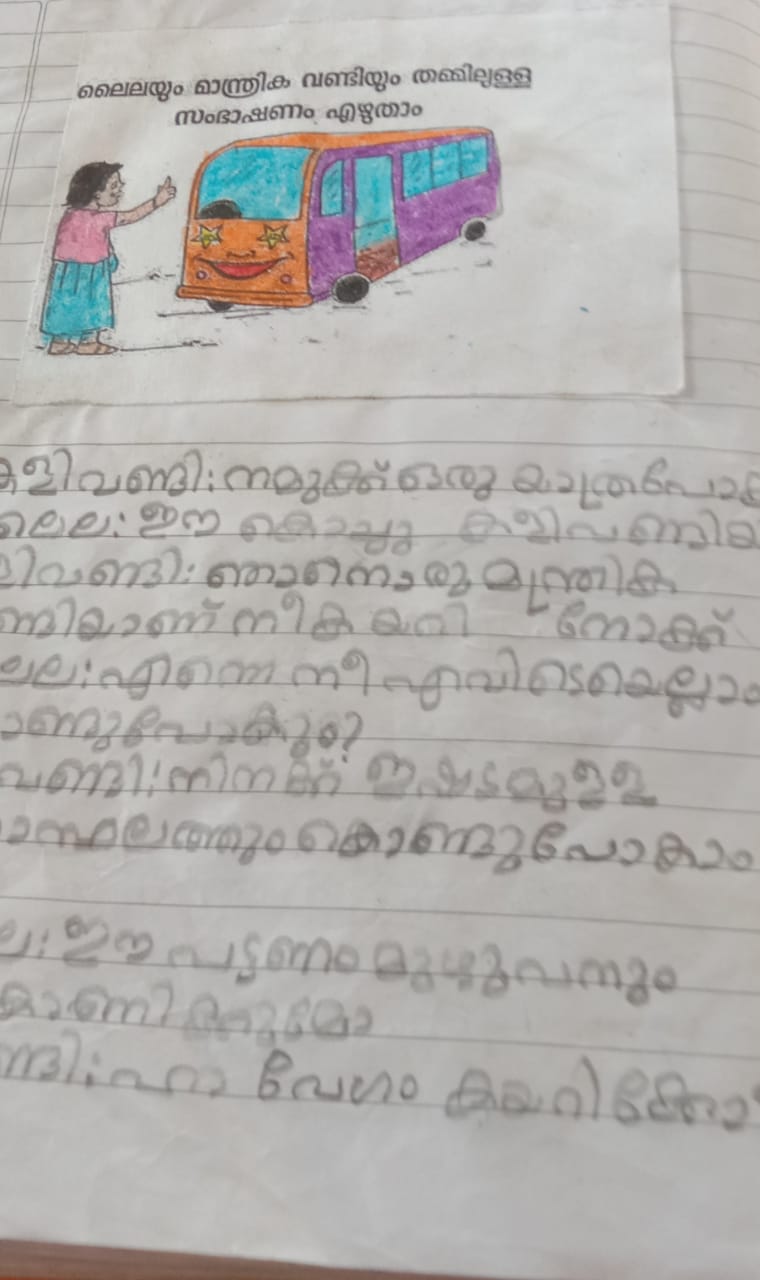 ലൈലയും മാന്ത്രിക വണ്ടിയും തമ്മിലുള്ള
സംഭാഷണം എഴുതാം
കളിവണ്ടി: നമുക്ക് ഒരു യാത്രപോ
ലൈല: ഈ കൊച്ചു കളിവണ്ടിയ
ിവണ്ടി: ഞാനൊരു മാന്ത്രിക
ണ്ടിയാണ് നീ കയറി നോക്ക്
ലൈല: എന്നെ നീ എവിടെയെല്ലാം
ണ്ടുപോകും?
വണ്ടി: നിനക്ക് ഇഷ്ടമുള്ള
സ്ഥലത്തും കൊണ്ടുപോകാം
ല: ഈ പട്ടണം മുഴുവനും
കാണിക്കുമോ
ണ്ടി: ഹാ വേഗം കയറിക്കോ